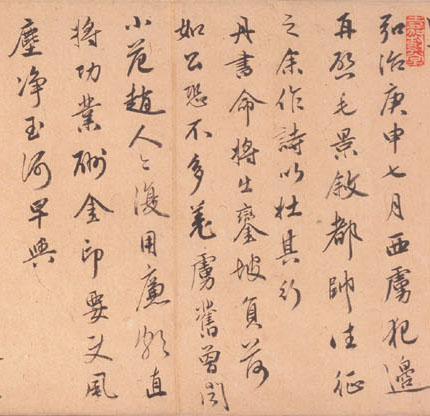 弘治庚申七月西虜犯邊
再毛景敘都帥往征
之余作詩以壯其行
丹書命將出鑾坡負荷
如公恐不多羌虜舊曾聞
小范趙人復用廉頗直
將功業酬金印要風
塵淨玉河早與